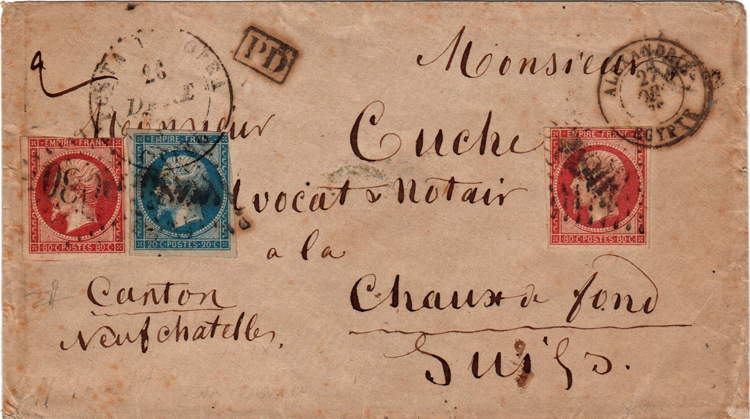 2
POSTA
26
PD
Monsieur
ALEXANDRIE
27
EGYPTE
Monsieur
Cuche
EMPIRE FRANC
80 C POSTES 80 C
EMPIRE FRANC
20 C POSTES 20 C
EMPIRE FRANC
80 C POSTES 80 C
Avocat & Notair
a la
Canton
Neufchatelle,
Chaux de fond
Suifs.